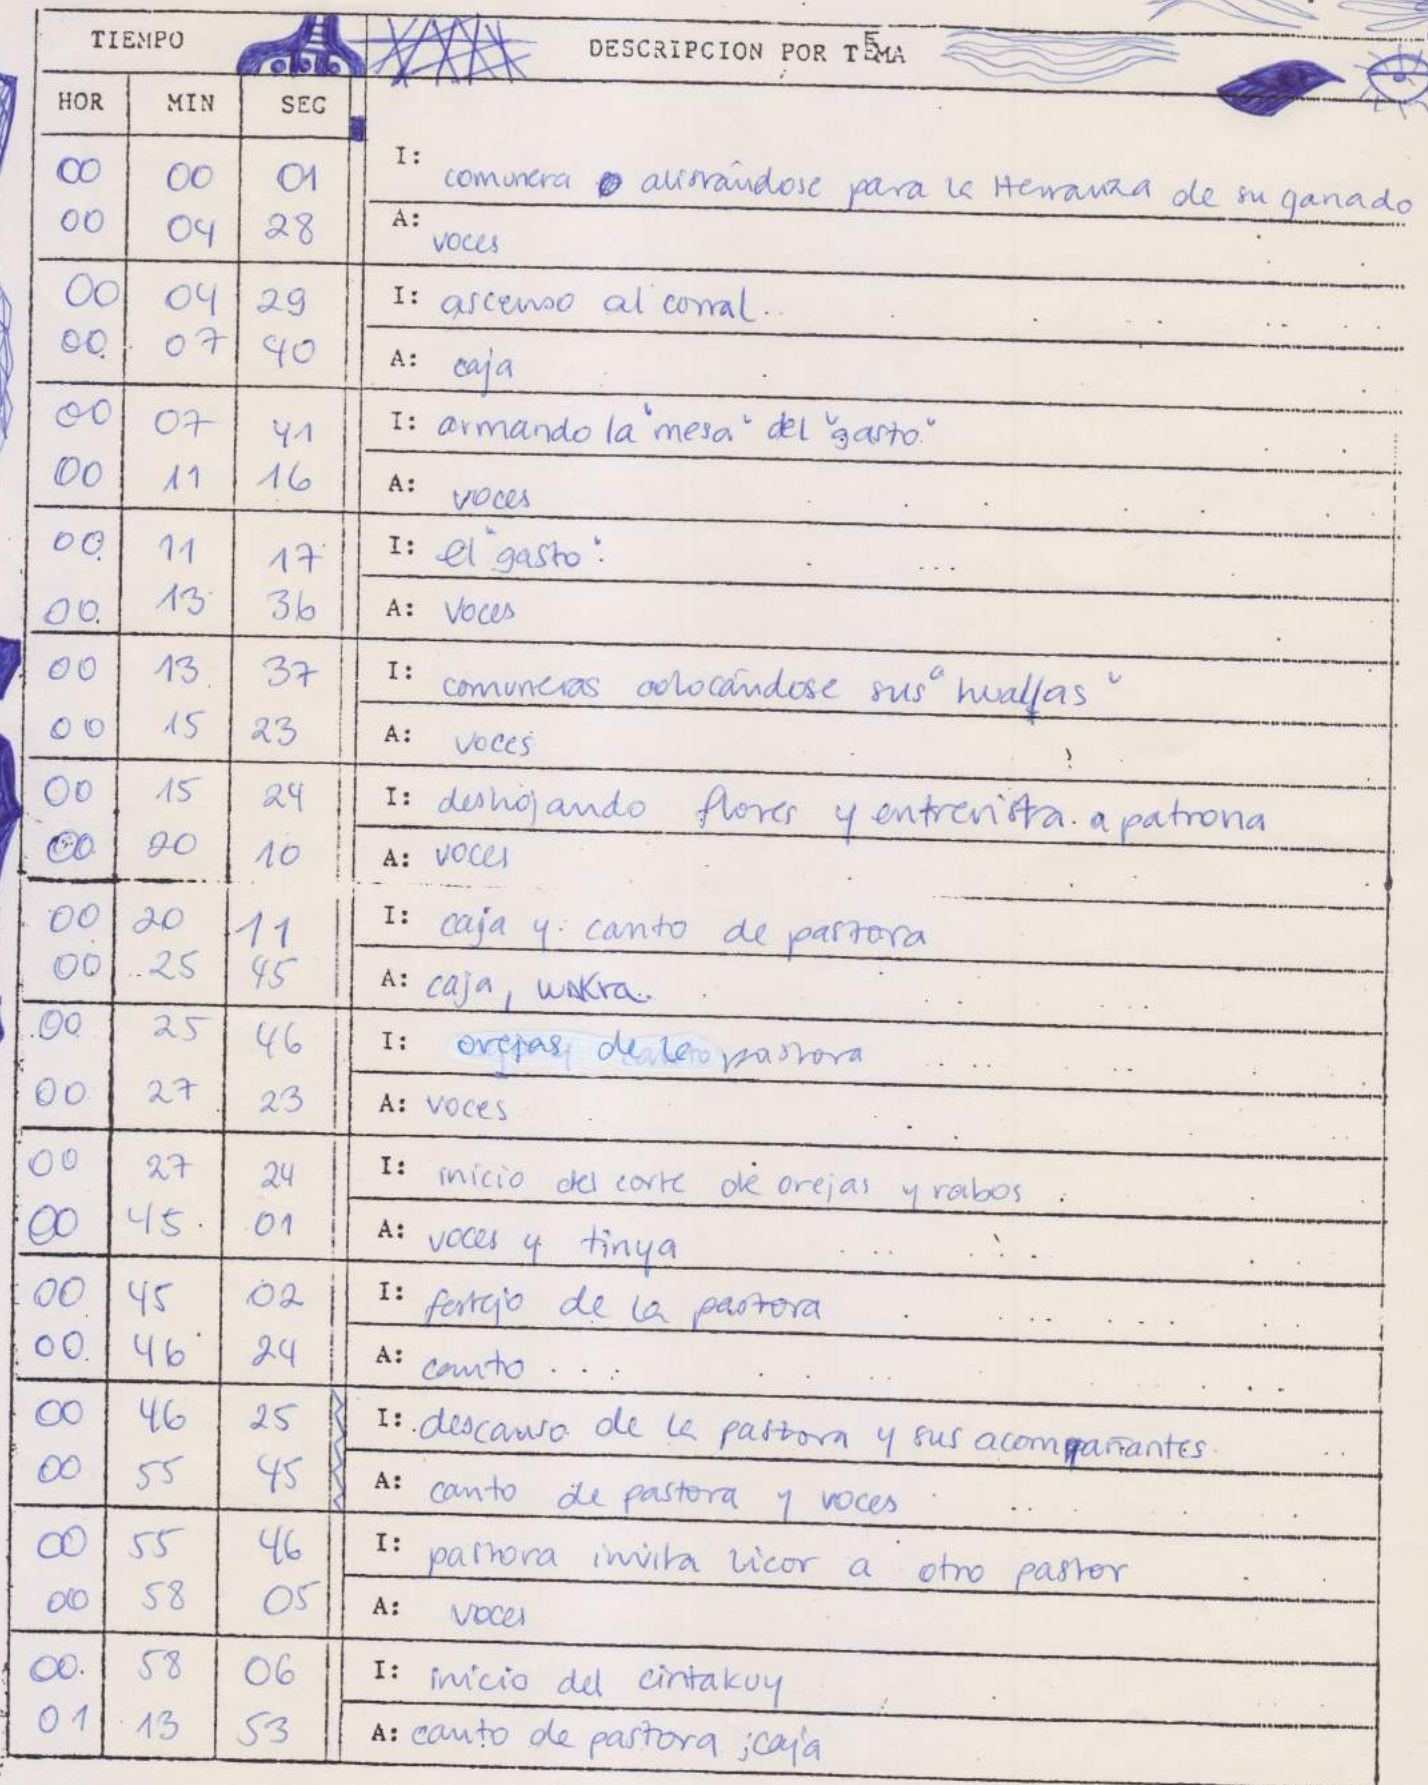 TIEMPO DESCRIPCION POR TEMA
HOR MIN SEG
00 00 01 I: comunera alistándose para la Herranza de su ganado
00 04 28 A: voces
00 04 29 I: ascenso al corral.
00 07 40 A: caja
00 07 41 I: armando la "mesa" del "gasto"
00 11 16 A: voces
00 11 17 I: el "gasto".
00 13 36 A: voces
00 13 37 I: comuneras colocándose sus "huallas"
00 15 23 A: voces
00 15 24 I: deshojando flores y entrevista a patrona
00 20 10 A: voces
00 20 11 I: caja y canto de pastora
00 25 45 A: caja, wakra.
00 25 46 I: orejas de la pastora
00 27 23 A: voces
00 27 24 I: inicio del corte de orejas y rabos
00 45 01 A: voces y tinya
00 45 02 I: festejo de la pastora
00 46 24 A: canto
00 46 25 I: descanso de la pastora y sus acompañantes
00 55 45 A: canto de pastora y voces
00 55 46 I: pastora invita licor a otro pastor
00 58 05 A: voces
00 58 06 I: inicio del cintakuy
01 13 53 A: canto de pastora ; caja